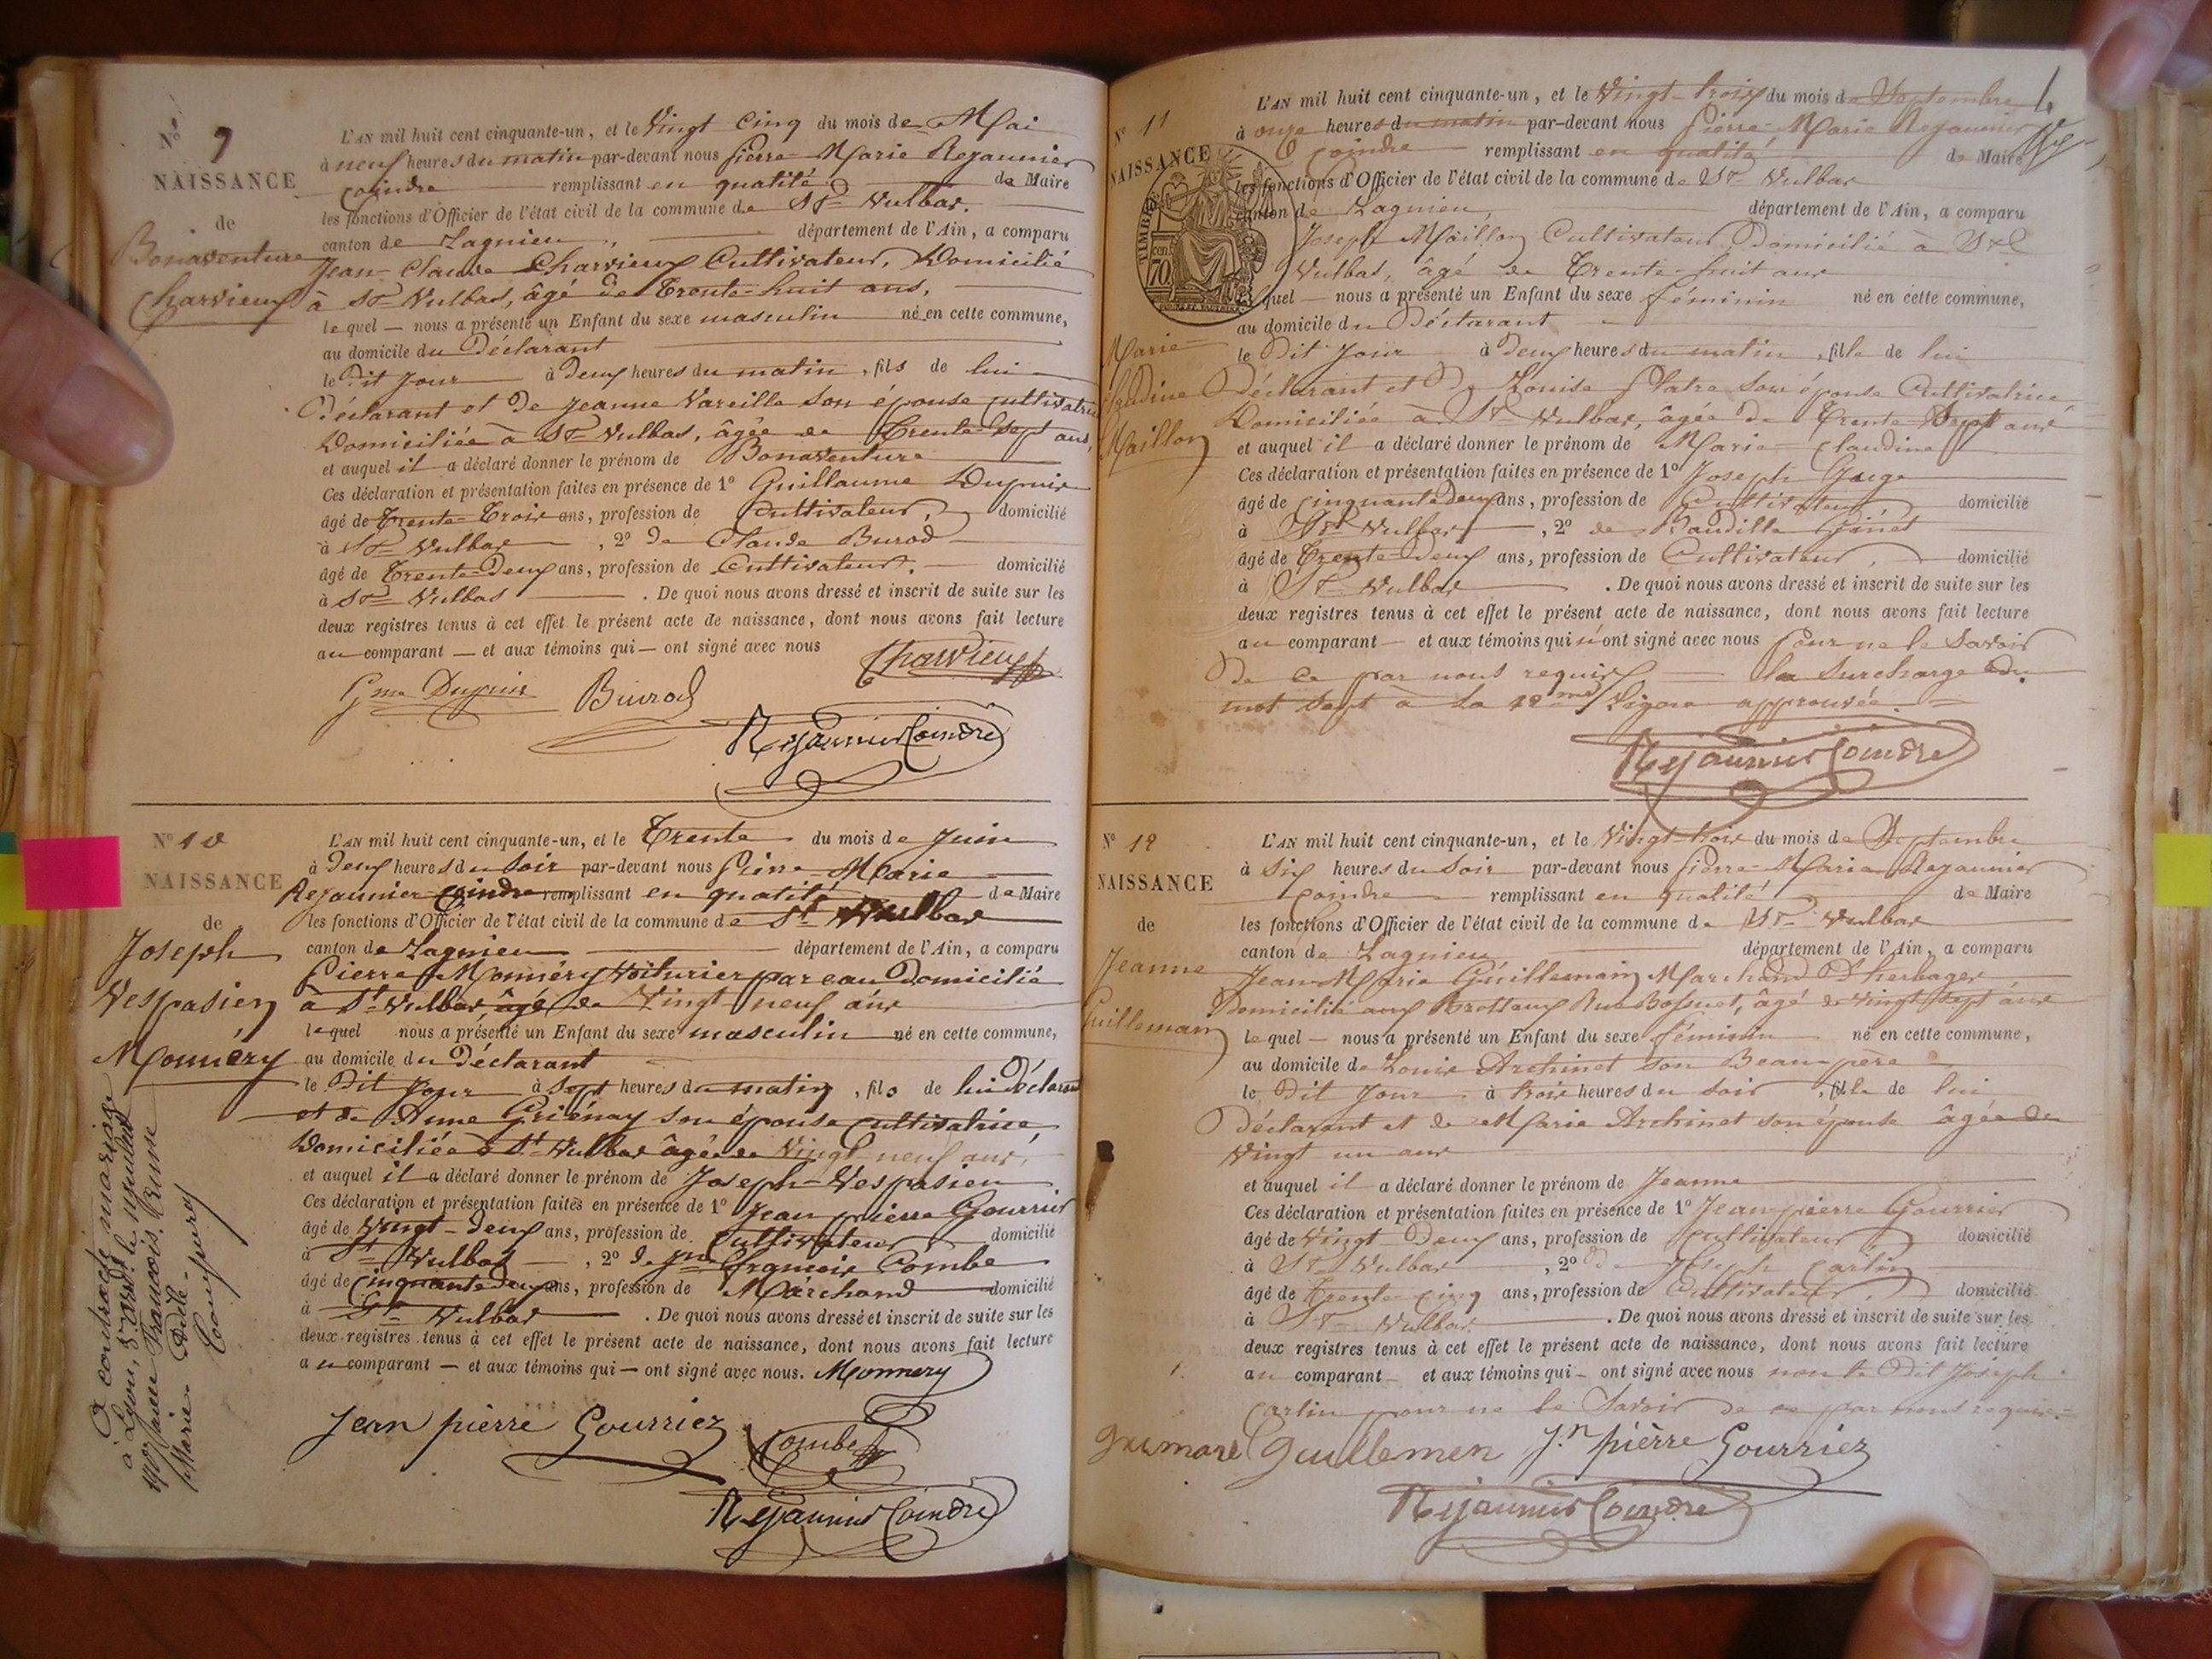 N° 9
NAISSANCE
de
Bonaventure
Charvieux
L'AN mil huit cent cinquante-un, et le Vingt Cinq du mois de Mai
à neuf heures du matin par-devant nous Pierre-Marie Rejaunier
Coindre remplissant en qualité de Maire
les fonctions d'Officier de l'état civil de la commune de St Vulbas.
canton de Lagnieu, département de l'Ain, a comparu
Jean-Claude Charvieux Cultivateur, Domicilié
à St Vulbas, âgé de Trente-huit ans,
lequel — nous a présenté un Enfant du sexe masculin né en cette commune,
au domicile du Déclarant
le Dit Jour à Deux heures du matin, fils de lui
Déclarant et de Jeanne Vareille Son épouse Cultivatrice
Domiciliée à St Vulbas, âgée de Trente-Sept ans,
et auquel il a déclaré donner le prénom de Bonaventure
Ces déclaration et présentation faites en présence de 1° Guillaume Dupuis
âgé de Trente-Trois ans, profession de Cultivateur, domicilié
à St Vulbas, 2° de Claude Burod
âgé de Trente-Deux ans, profession de Cultivateur. domicilié
à St Vulbas. De quoi nous avons dressé et inscrit de suite sur les
deux registres tenus à cet effet le présent acte de naissance, dont nous avons fait lecture
au comparant — et aux témoins qui — ont signé avec nous
Charvieux
Gme Dupuis Burod
Rejaunier Coindre
N° 10
NAISSANCE
de
Joseph
Vespasien
Monnéry
L'AN mil huit cent cinquante-un, et le Trente du mois de Juin
à Deux heures du Soir par-devant nous Pierre-Marie
Rejaunier Coindre remplissant en qualité de Maire
les fonctions d'Officier de l'état civil de la commune de St Vulbas
canton de Lagnieu département de l'Ain, a comparu
Pierre Monnéry Voiturier par eau Domicilié
à St Vulbas, âgé de Vingt neuf ans
lequel nous a présenté un Enfant du sexe masculin né en cette commune,
au domicile du Déclarant
le Dit Jour à Sept heures du matin, fils de lui Déclarant
et de Anne Grienay son épouse Cultivatrice,
Domiciliée à St Vulbas âgée de Vingt neuf ans,
et auquel il a déclaré donner le prénom de Joseph-Vespasien
Ces déclaration et présentation faites en présence de 1° Jean pierre Gourrier
âgé de Vingt-Deux ans, profession de Cultivateur domicilié
à St Vulbas, 2° de François Combe
âgé de Cinquante Deux ans, profession de Marchand domicilié
à St Vulbas. De quoi nous avons dressé et inscrit de suite sur les
deux registres tenus à cet effet le présent acte de naissance, dont nous avons fait lecture
au comparant — et aux témoins qui — ont signé avec nous. Monnery
Jean pièrre Gourriez Combe
Rejaunier Coindre
A contracté mariage
à Lyon, 3e ardt le
1907 avec François
Marie Adèle
N° 11
NAISSANCE
TIMBRE
70
Marie
Claudine
Maillon
L'AN mil huit cent cinquante-un, et le Vingt-trois du mois de Septembre
à onze heures du matin par-devant nous Pierre-Marie Rejaunier
Coindre remplissant en qualité de Maire
les fonctions d'Officier de l'état civil de la commune de St Vulbas
canton de Lagnieu, département de l'Ain, a comparu
Joseph Maillon Cultivateur, Domicilié à St
Vulbas, âgé de Trente-huit ans
lequel — nous a présenté un Enfant du sexe féminin né en cette commune,
au domicile du Déclarant
le Dit Jour à Deux heures du matin, fille de lui
Déclarant et de Louise Platre Son épouse Cultivatrice
Domiciliée à St Vulbas, âgée de Trente Sept ans
et auquel il a déclaré donner le prénom de Marie-Claudine
Ces déclaration et présentation faites en présence de 1° Joseph
âgé de Cinquante Deux ans, profession de Cultivateur domicilié
à St Vulbas, 2° de Baudille Ginet
âgé de Trente-Deux ans, profession de Cultivateur, domicilié
à St Vulbas. De quoi nous avons dressé et inscrit de suite sur les
deux registres tenus à cet effet le présent acte de naissance, dont nous avons fait lecture
au comparant — et aux témoins qui n'ont signé avec nous Pour ne le Savoir
De ce par nous requis la Surcharge du
mot Sept à la 12me Ligne approuvée.
Rejaunier Coindre
N° 12
NAISSANCE
de
Jeanne
Guillemain
L'AN mil huit cent cinquante-un, et le Vingt-trois du mois de Septembre
à Six heures du Soir par-devant nous Pierre-Marie Rejaunier
Coindre remplissant en qualité de Maire
les fonctions d'Officier de l'état civil de la commune de St Vulbas
canton de Lagnieu département de l'Ain, a comparu
Jean-Marie Guillemain Marchand D'herbages
Domicilié aux Brotteaux Rue Bossuet, âgé de Vingt Sept ans
lequel — nous a présenté un Enfant du sexe féminin né en cette commune,
au domicile de Louis Archinet son Beau-père
le Dit Jour à trois heures du soir, fille de lui
Déclarant et de Marie Archinet son épouse âgée de
Vingt un ans
et auquel il a déclaré donner le prénom de Jeanne
Ces déclaration et présentation faites en présence de 1° Jean pierre Gourrier
âgé de Vingt Deux ans, profession de Cultivateur domicilié
à St Vulbas, 2° de Joseph Carlin
âgé de Trente-Cinq ans, profession de Cultivateur, domicilié
à St Vulbas. De quoi nous avons dressé et inscrit de suite sur les
deux registres tenus à cet effet le présent acte de naissance, dont nous avons fait lecture
au comparant — et aux témoins qui — ont signé avec nous non le Dit Joseph
Carlin pour ne le Savoir de ce par nous requis
Guillemen J.n pièrre Gourriez
Rejaunier Coindre